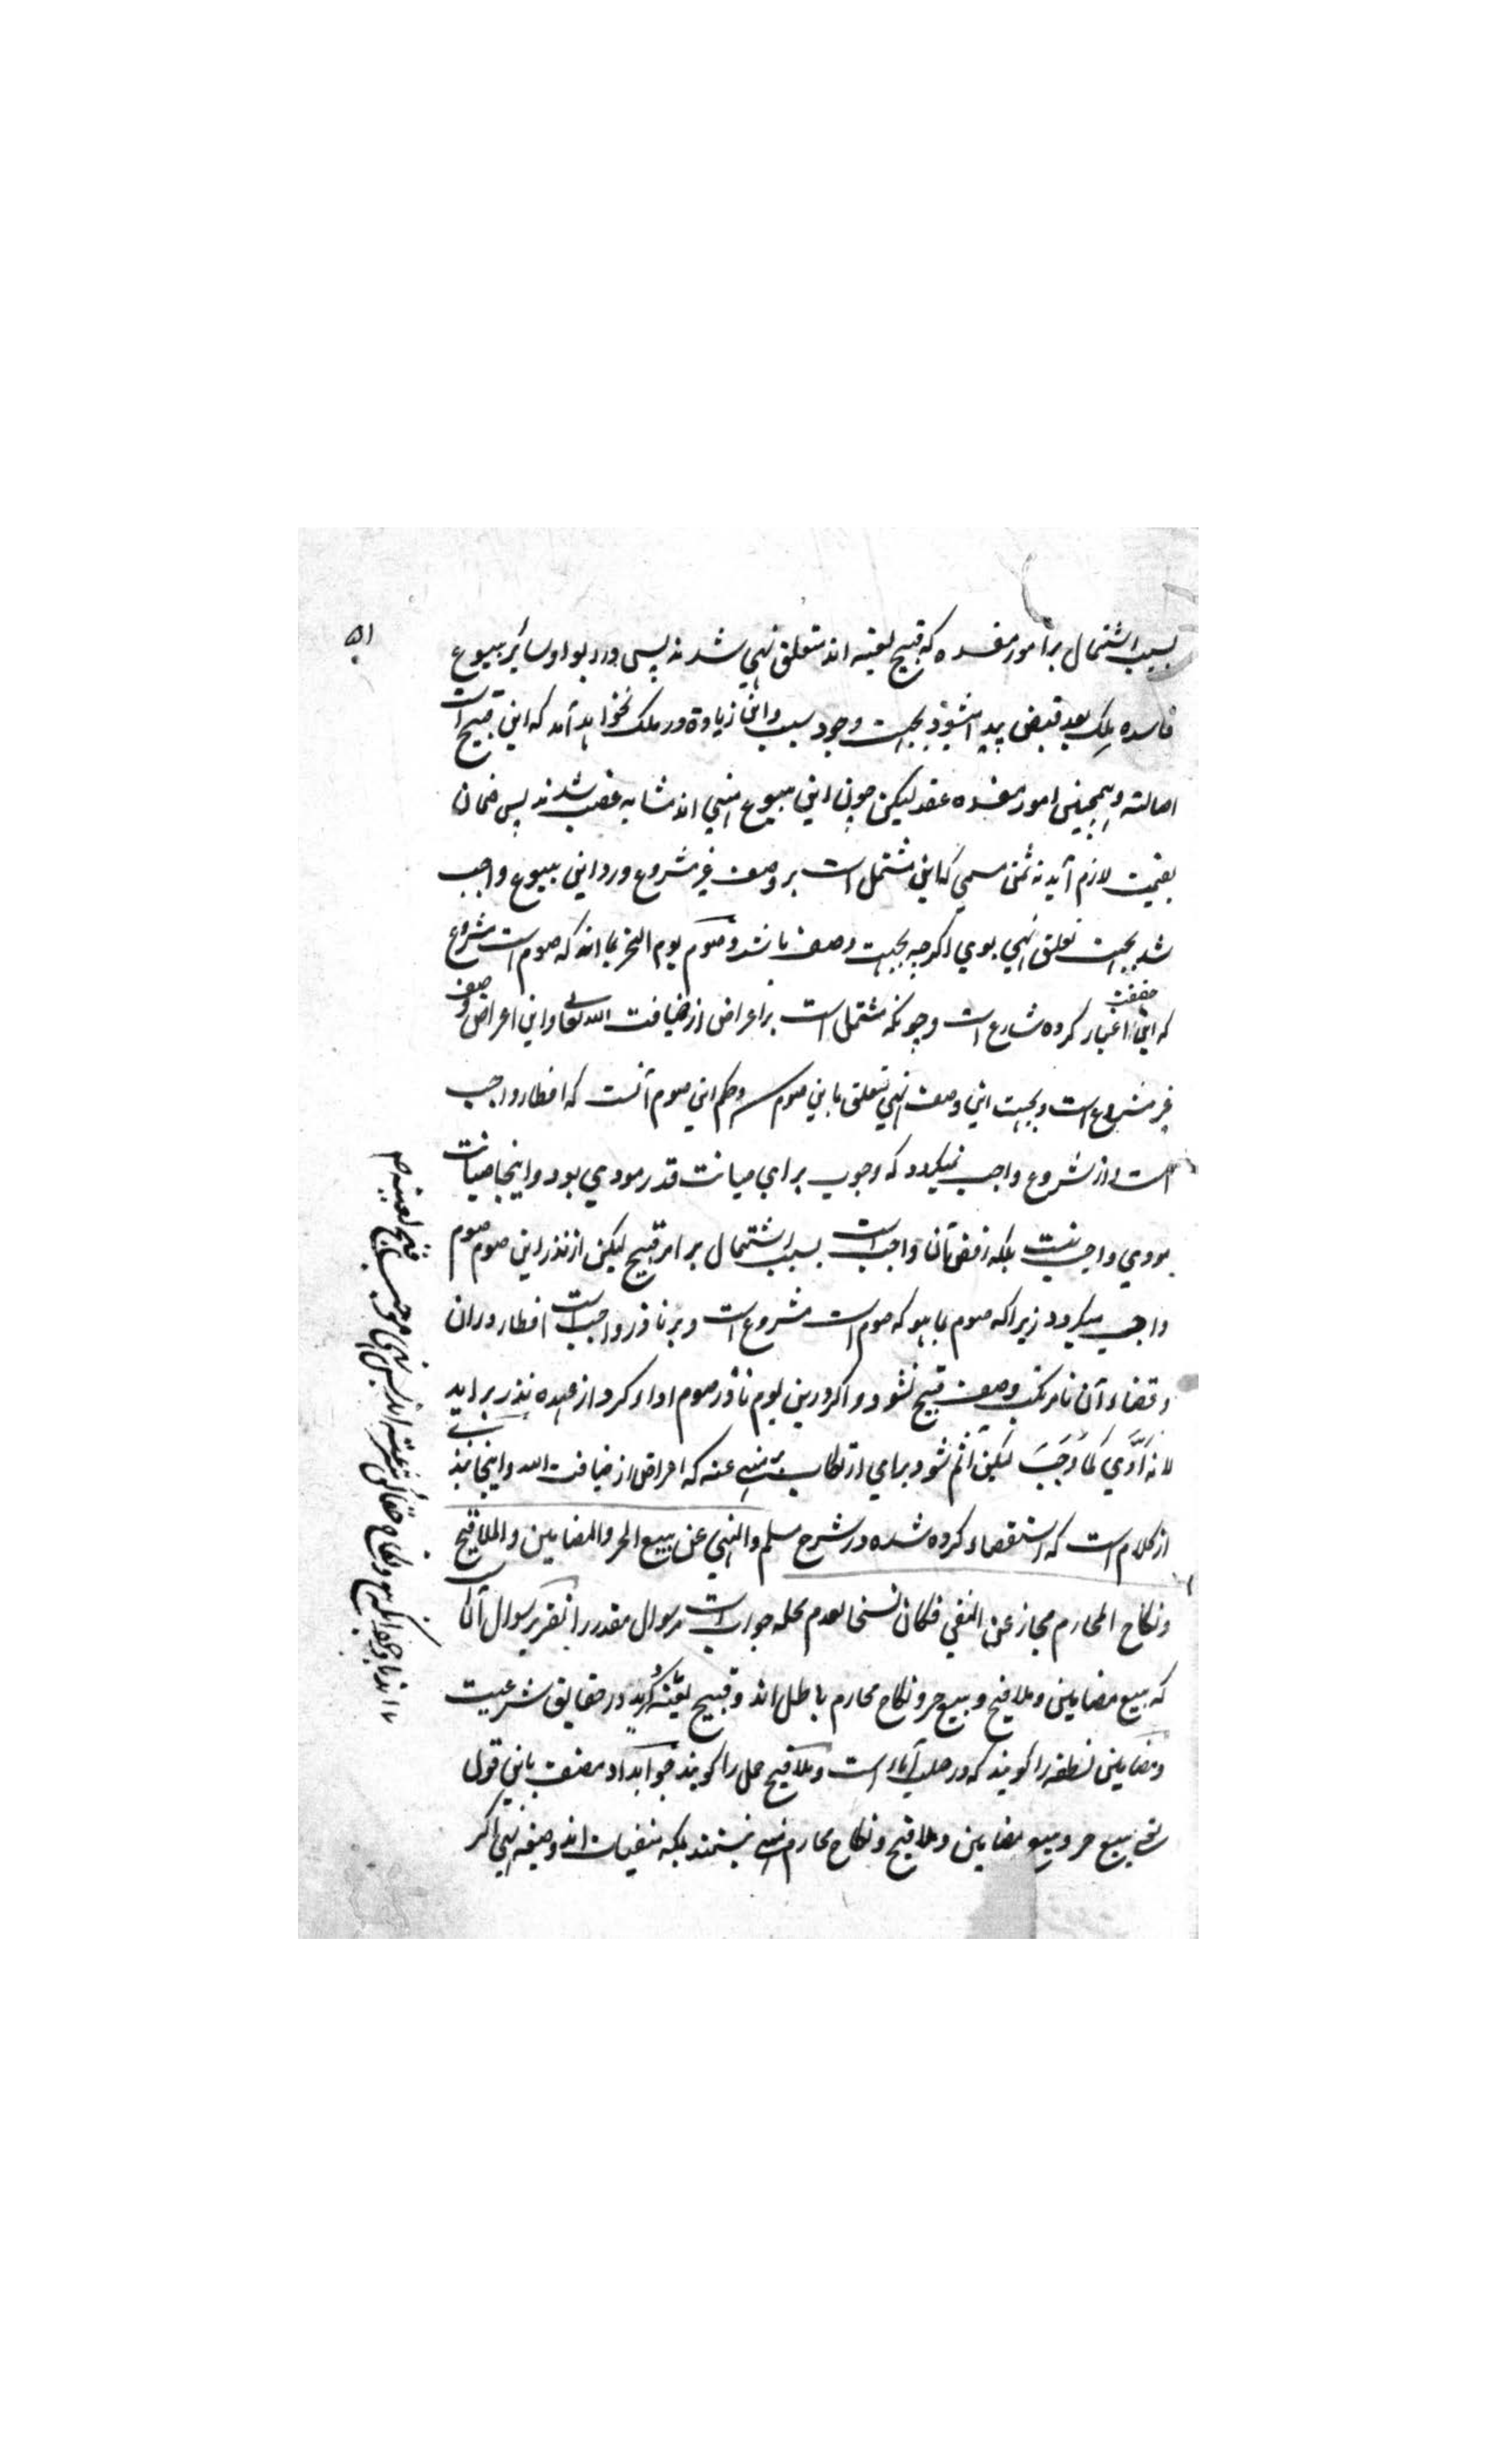 ۵۱
بسبب اشتمال بر امور مفسده که قبیح لعینه اند متعلق نهی شدند پس در ربوا و سائر بیوع
فاسده ملک بعد قبض پیدا میشود بجهت وجود سبب و این زیادة در ملک نخواهد آمد که این قبیح است
اصالته و همچنین امور مفسده عقد لیکن چون این بیوع منهی اند مشابه غصب شدند پس ضمان
بقیمت لازم آید نه ثمن مسمی که این مشتمل است بر وصف غیر مشروع و رد این بیوع واجب
شد بجهت تعلق نهی بوی اگرچه بجهت وصف باشد و صوم یوم النحر بما انه که صوم است مشروع
که این حقیقت اعتبار کرده شارع است و چونکه مشتمل است بر اعراض از ضیافت الله تعالی و این اعراض وصف
غیر مشروع است و بجهت این وصف نهی متعلق باین صوم و حکم این صوم آنست که افطار واجب
است و از شروع واجب نمیگردد که وجوب برای صیانت قدر مودی بود و اینجا صیانت
مودی واجب نیست بلکه رفض آن واجب است بسبب اشتمال بر امر قبیح لیکن از نذر این صوم صوم
واجب میگردد زیرا که صوم بما هو که صوم است مشروع است و بر ناذر واجب است افطار دران
و قضاء آن تا مرتکب وصف قبیح نشود و اگر درین یوم ناذر صوم اداء کرد از عهده نذر براید
لانه ادی کما وجب لیکن آثم شود برای ارتکاب منهی عنه که اعراض از ضیافت الله و اینجا نبذی
از کلام است که استقصاء کرده شده در شرح مسلم والنهی عن بیع الحر والمضامین والملاقیح
ونکاح المحارم مجاز عن النفی فکان نسخا لعدم محله جواب است مر سوال مقدر را تقریر سوال آن
که بیع مضامین و ملاقیح و بیع حر و نکاح محارم باطل اند و قبیح لعینه در حقایق شرعیت
و مضامین نطفه را گویند که در صلب آباء است و ملاقیح حمل را گویند جواب داد مصنف باین قول
بیع حر و بیع مضامین و ملاقیح و نکاح محارم منهی نیستند بلکه منفیات اند و صیغه نهی اگر